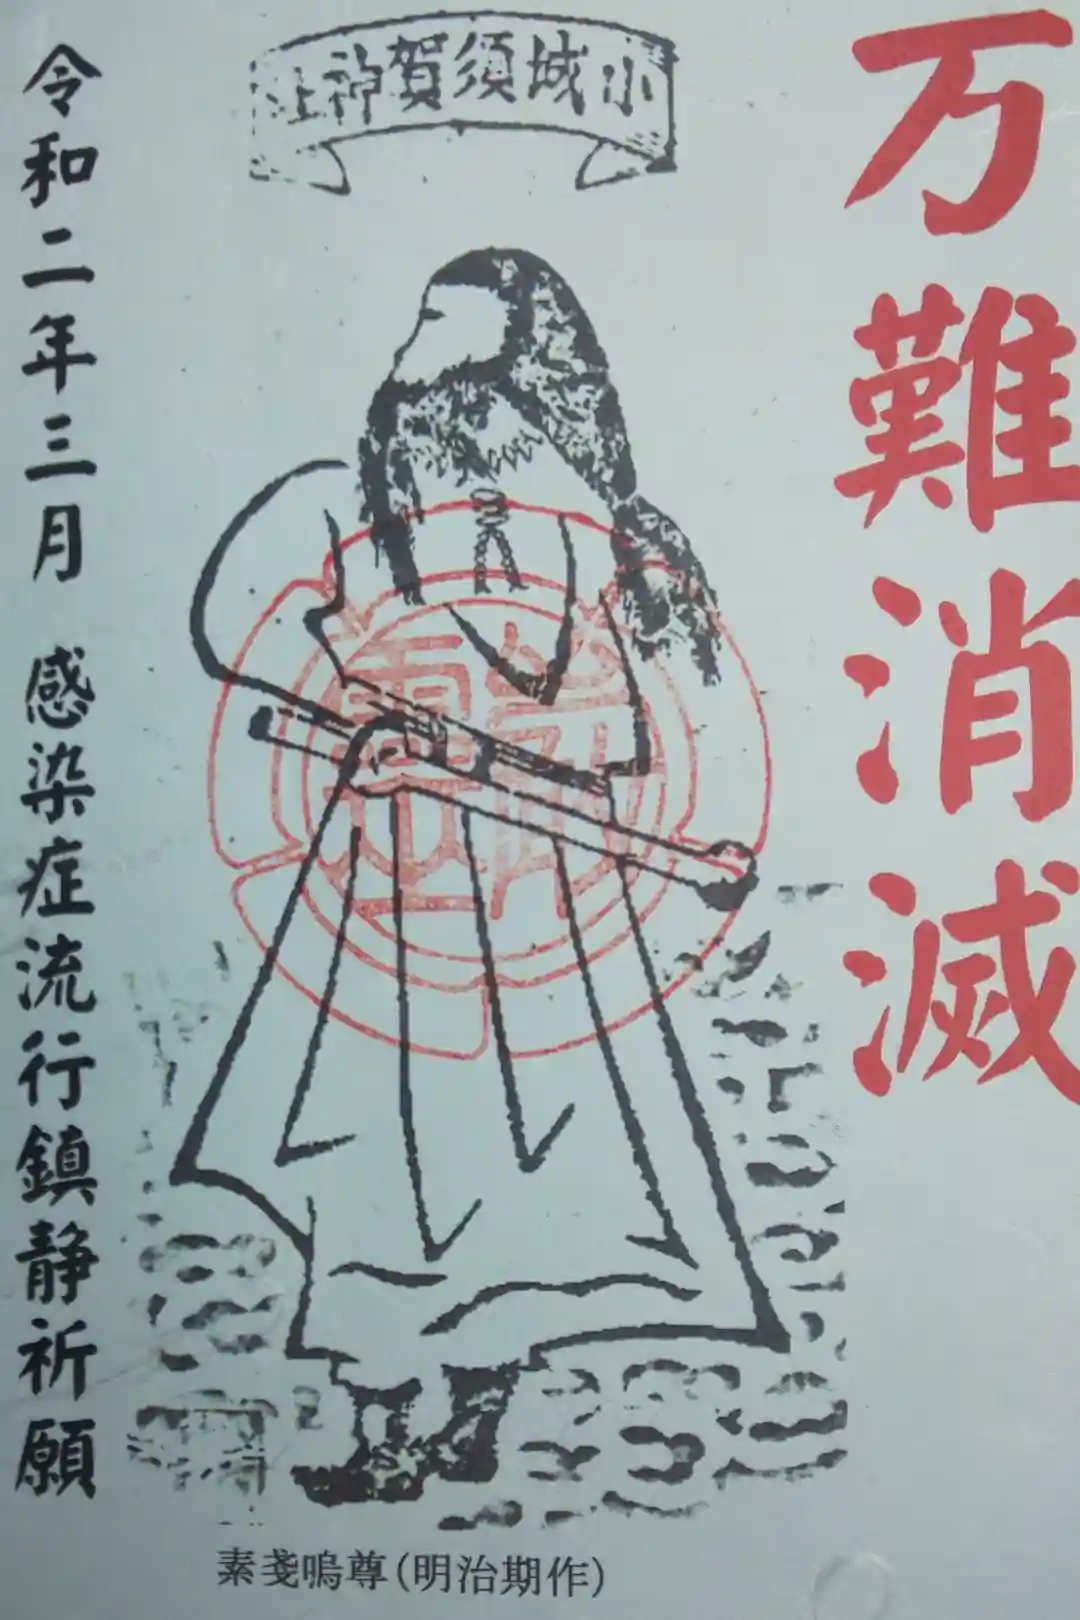 万難消滅
小城須賀神社
令和二年三月 感染症流行鎮静祈願
素戔嗚尊(明治期作)